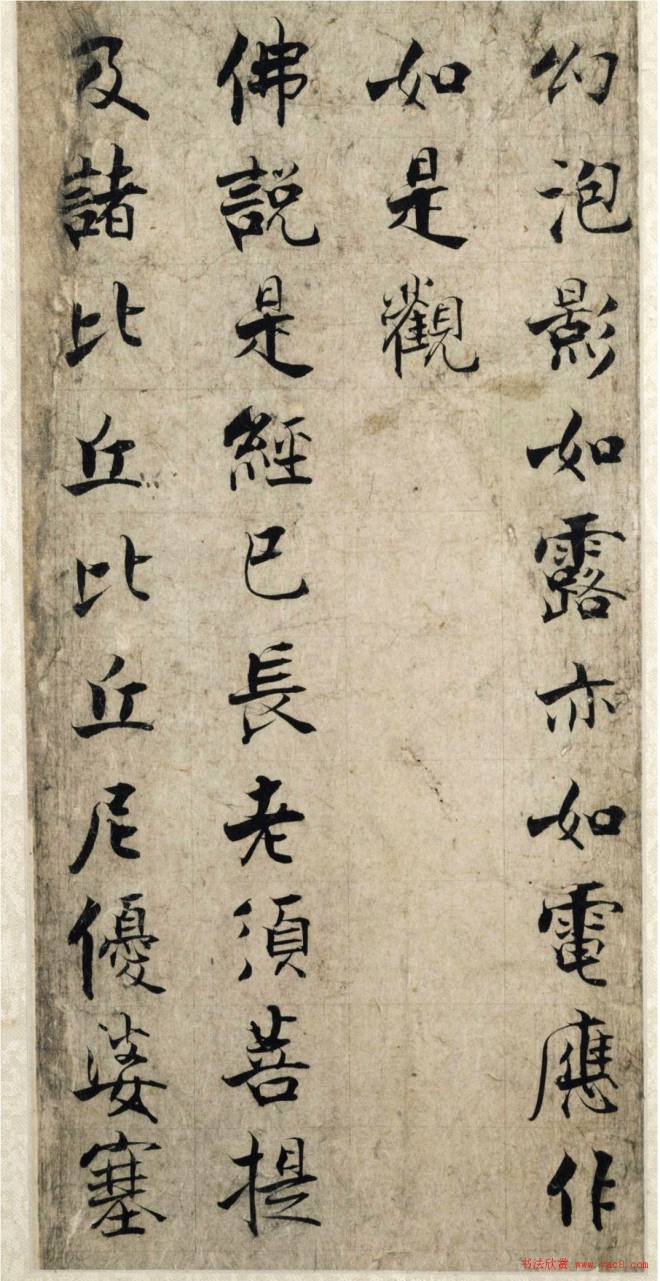 幻泡影如露亦如電應作
如是觀
佛説是經已長老須菩提
及諸比丘比丘尼優婆塞
书法欣赏 www.yac8.com